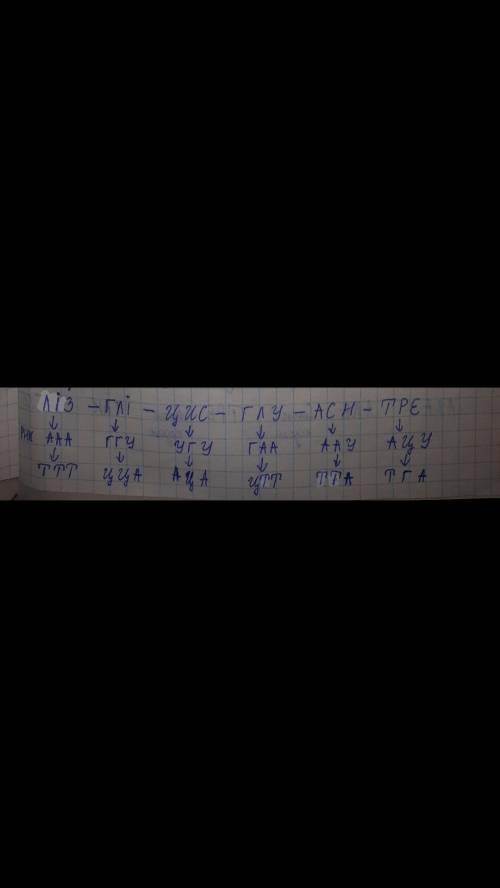 ЛІЗ – ГЛІ – ЦИС – ГЛУ – АСН – ТРЕ
↓ ↓ ↓ ↓ ↓ ↓
РНК ААА ГГУ УГУ ГАА ААУ АЦУ
↓ ↓ ↓ ↓ ↓ ↓
ТТТ ЦЦА АЦА ЦТТ ТТА ТГА